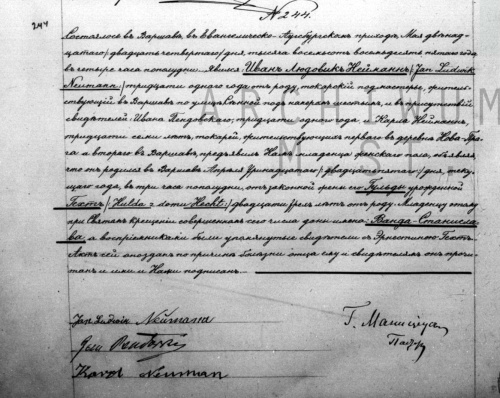 244
N 244.
Состоялось въ Варшавѣ въ Евангелическо-Аугсбургскомъ приходѣ, Мая двѣнад-
цатаго/двадцать четвертаго/дня, тысяча восемьсотъ восемьдесятъ пятаго года
въ четыре часа пополудни. Явился Иванъ Людовикъ Нейманъ /Jan Ludwik
Neumann/ тридцати одного года отъ роду, токарской подмастеръ, житель-
ствующій въ Варшавѣ по улицѣ подъ, и въ присутствіи
свидѣтелей Ивана Пендовскаго, тридцати одного года и Карла Неймана,
тридцати семи лѣтъ, токарей, жительствующихъ перваго въ деревнѣ Нова-
а втораго въ Варшавѣ, предъявилъ Намъ младенца женскаго пола, объявляя
что онъ родился въ Варшавѣ Апрѣля двадцать дня, теку-
щаго года, въ три часа пополудни, отъ законной жены его Гульды урожденной
Гехтъ /Hulda z domu Hecht/ двадцати лѣтъ отъ роду. Младенцу этому
при Святомъ Крещеніи совершенномъ сего числа дано имя: Ванда-Станисла-
ва, а воспріемниками были упомянутые свидѣтели съ Эрнестиною Гехтъ.
Актъ сей опозданъ по причинѣ болѣзни отца ему и свидѣтелямъ онъ прочи-
танъ и ими и Нами подписанъ.
Jan Ludwik Neumann
Jan
Karol Neuman